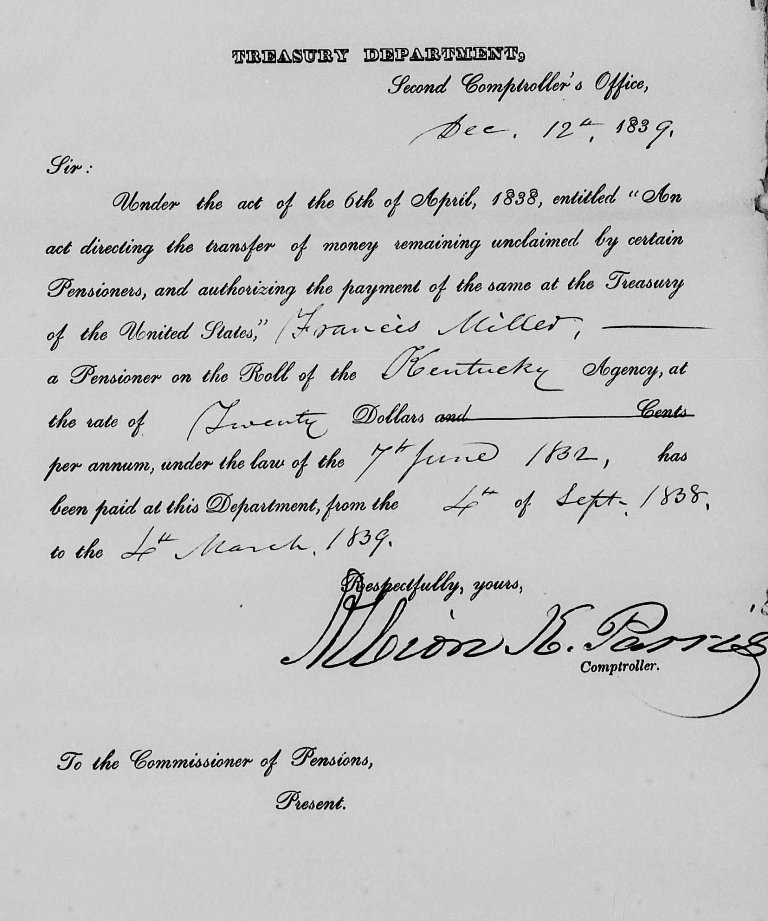 TREASURY DEPARTMENT,
Second Comptroller's Office,
Dec. 12th, 1839.
Sir:
Under the act of the 6th of April, 1838, entitled "An
act directing the transfer of money remaining unclaimed by certain
Pensioners, and authorizing the payment of the same at the Treasury
of the United States," Francis Miller,
a Pensioner on the Roll of the Kentucky Agency, at
the rate of Twenty Dollars and Cents
per annum, under the law of the 7th June 1832, has
been paid at this Department, from the 4th of Sept. 1838.
to the 4th March. 1839.
Respectfully, yours,
Albion K. Parris
Comptroller.
To the Commissioner of Pensions,
Present.